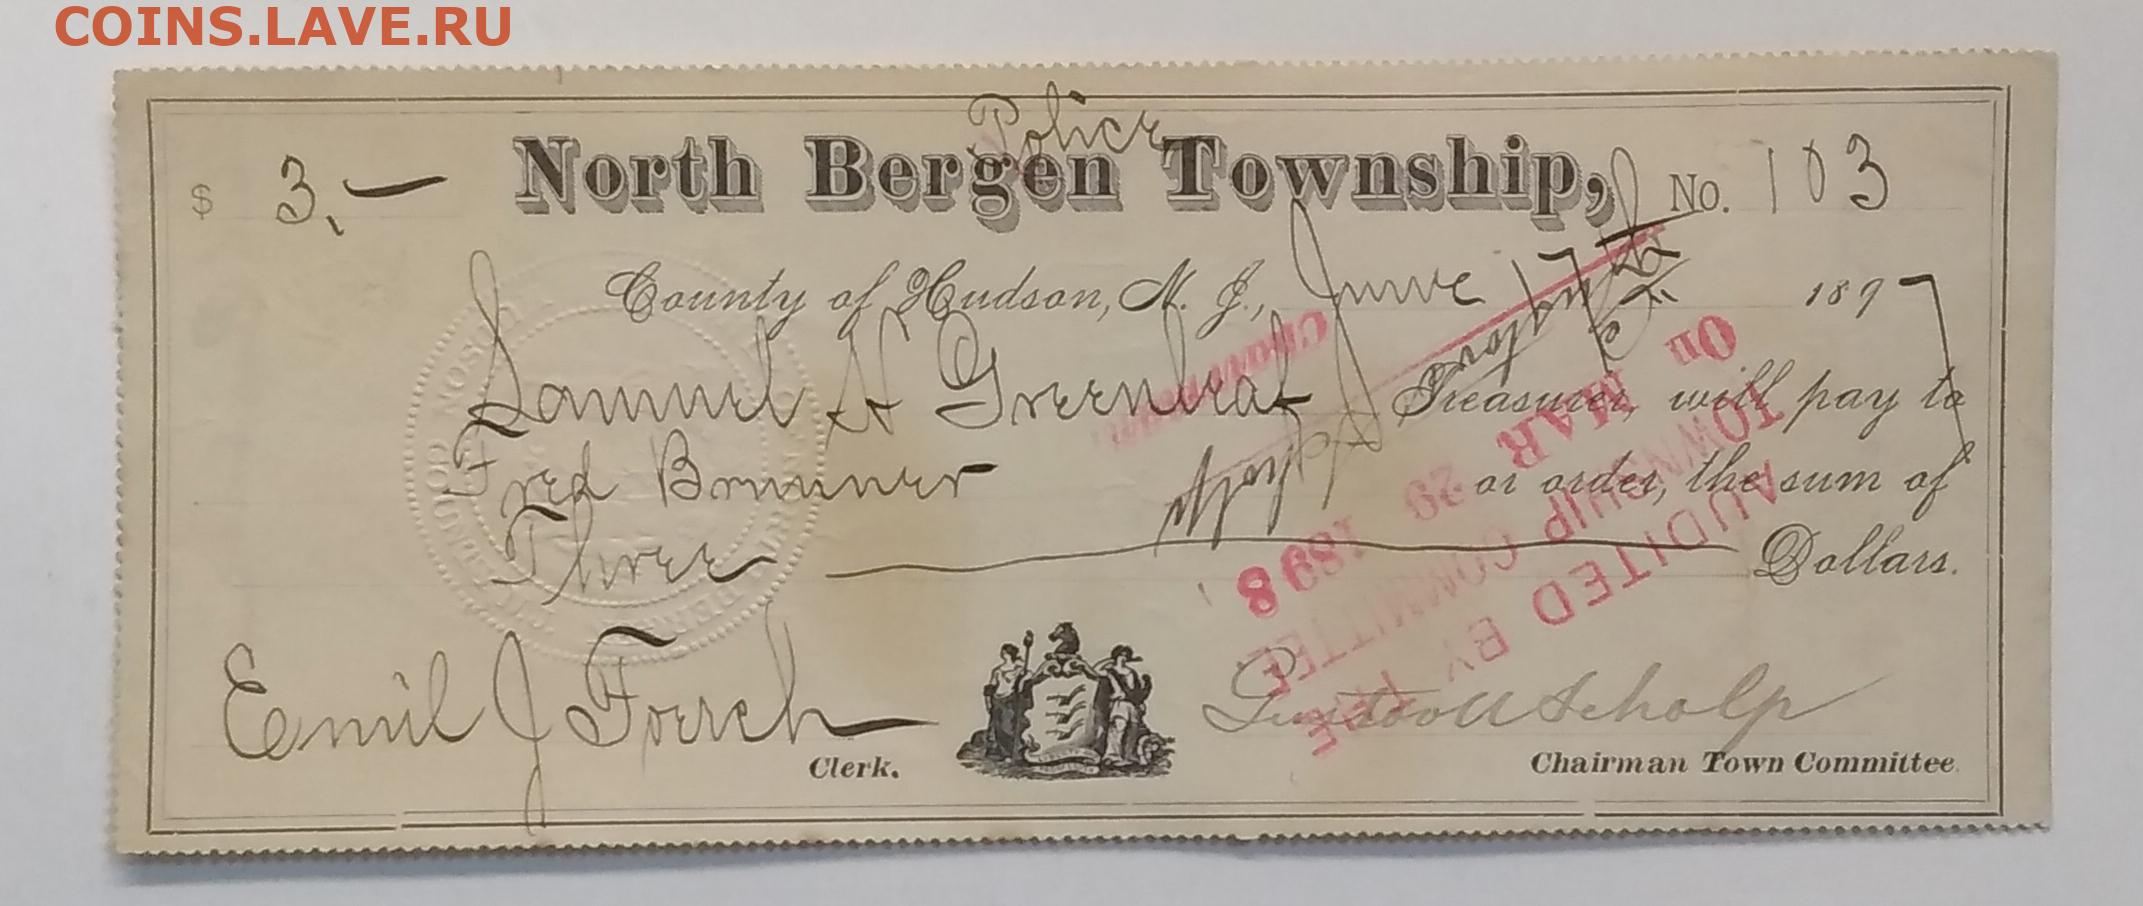 COINS.LAVE.RU
Police
$ 3.— North Bergen Township, No. 103
County of Hudson, N. J., June 17 1897
Samuel A Greenleaf Treasurer, will pay to
Fred Brunner or order, the sum of
Three Dollars.
Emil J Foerch
Clerk.
Chairman Town Committee.
AUDITED BY THE
TOWNSHIP COMMITTEE
On MAR 29 1898
Chairman